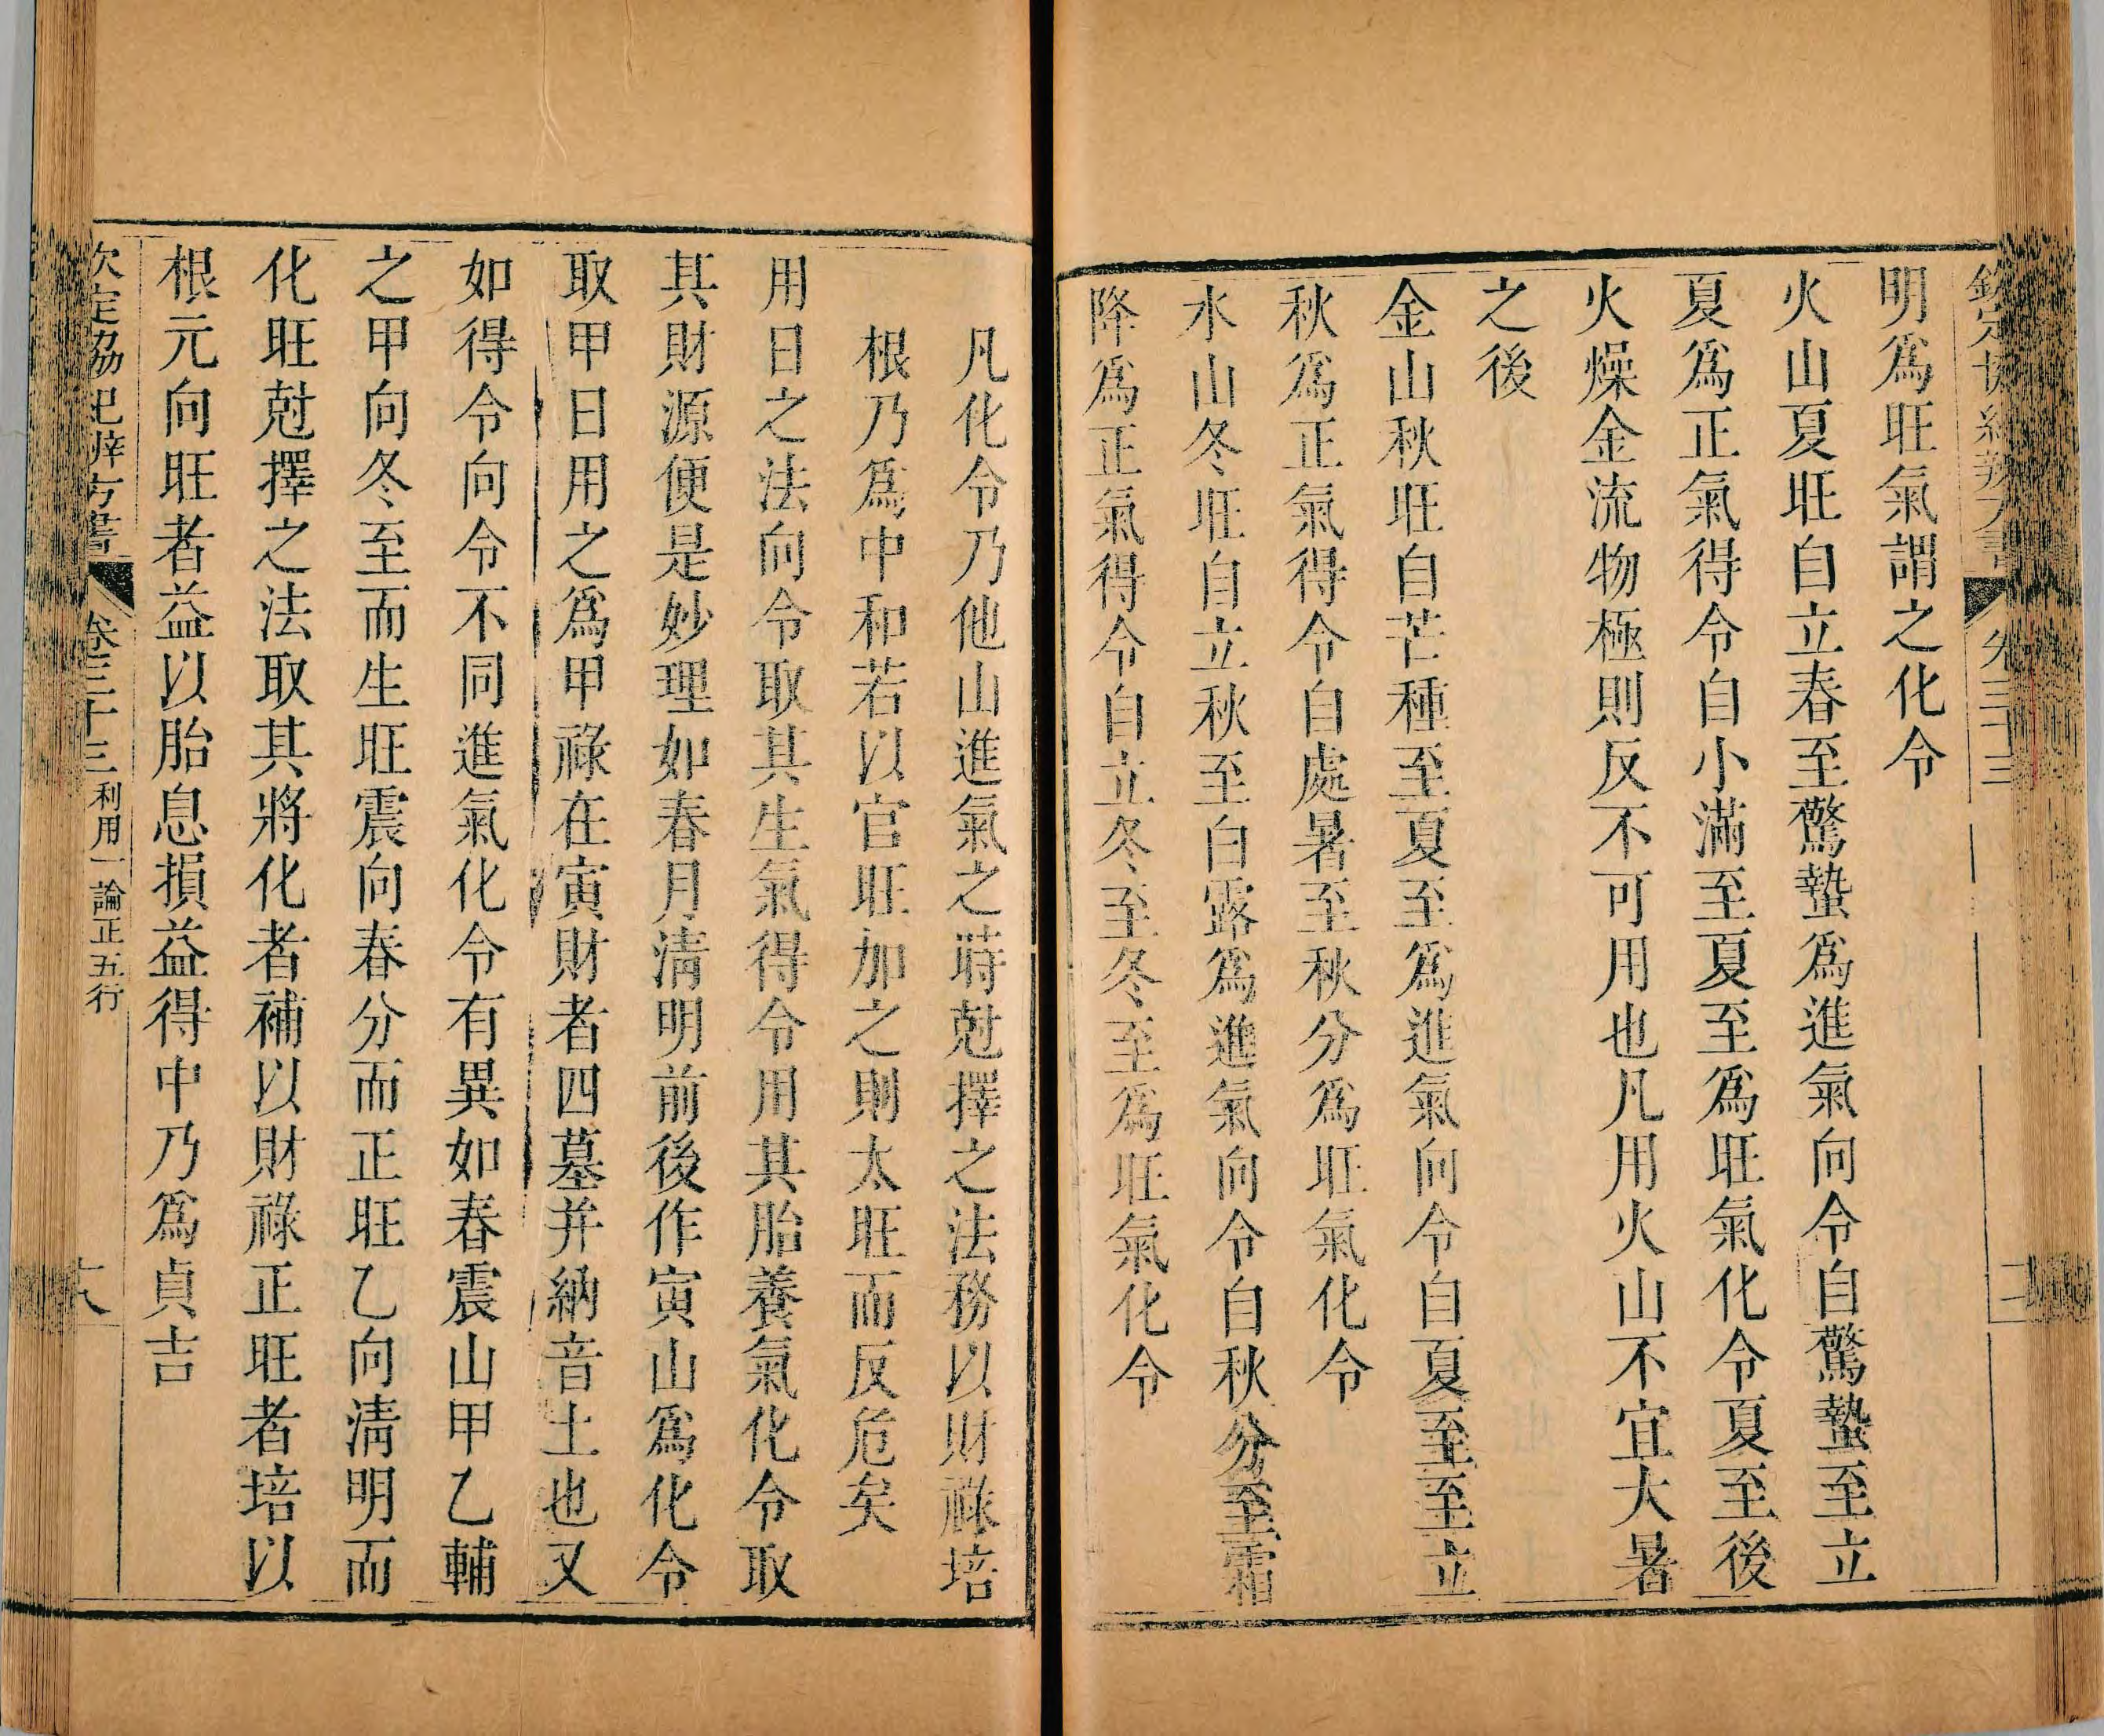 明爲旺氣謂之化令
火山夏旺自立春至驚蟄爲進氣向令自驚蟄至立
夏爲正氣得令自小滿至夏至爲旺氣化令夏至後
火燥金流物極則反不可用也凡用火山不宜大暑
之後
金山秋旺自芒種至夏至爲進氣向令自夏至至立
秋爲正氣得令自處暑至秋分爲旺氣化令
水山冬旺自立秋至白露爲進氣向令自秋分至霜
降爲正氣得令自立冬至冬至爲旺氣化令
凡化令乃他山進氣之時尅擇之法務以財祿培
根乃爲中和若以官旺加之則太旺而反危矣
用日之法向令取其生氣得令用其胎養氣化令取
其財源便是妙理如春月清明前後作寅山爲化令
取甲日用之爲甲祿在寅財者四墓并納音土也又
如得令向令不同進氣化令有異如春震山甲乙輔
之甲向冬至而生旺震向春分而正旺乙向清明而
化旺尅擇之法取其將化者補以財祿正旺者培以
根元向旺者益以胎息損益得中乃爲貞吉
欽定協紀辨方書 卷三十三 利用一 論正五行 十八